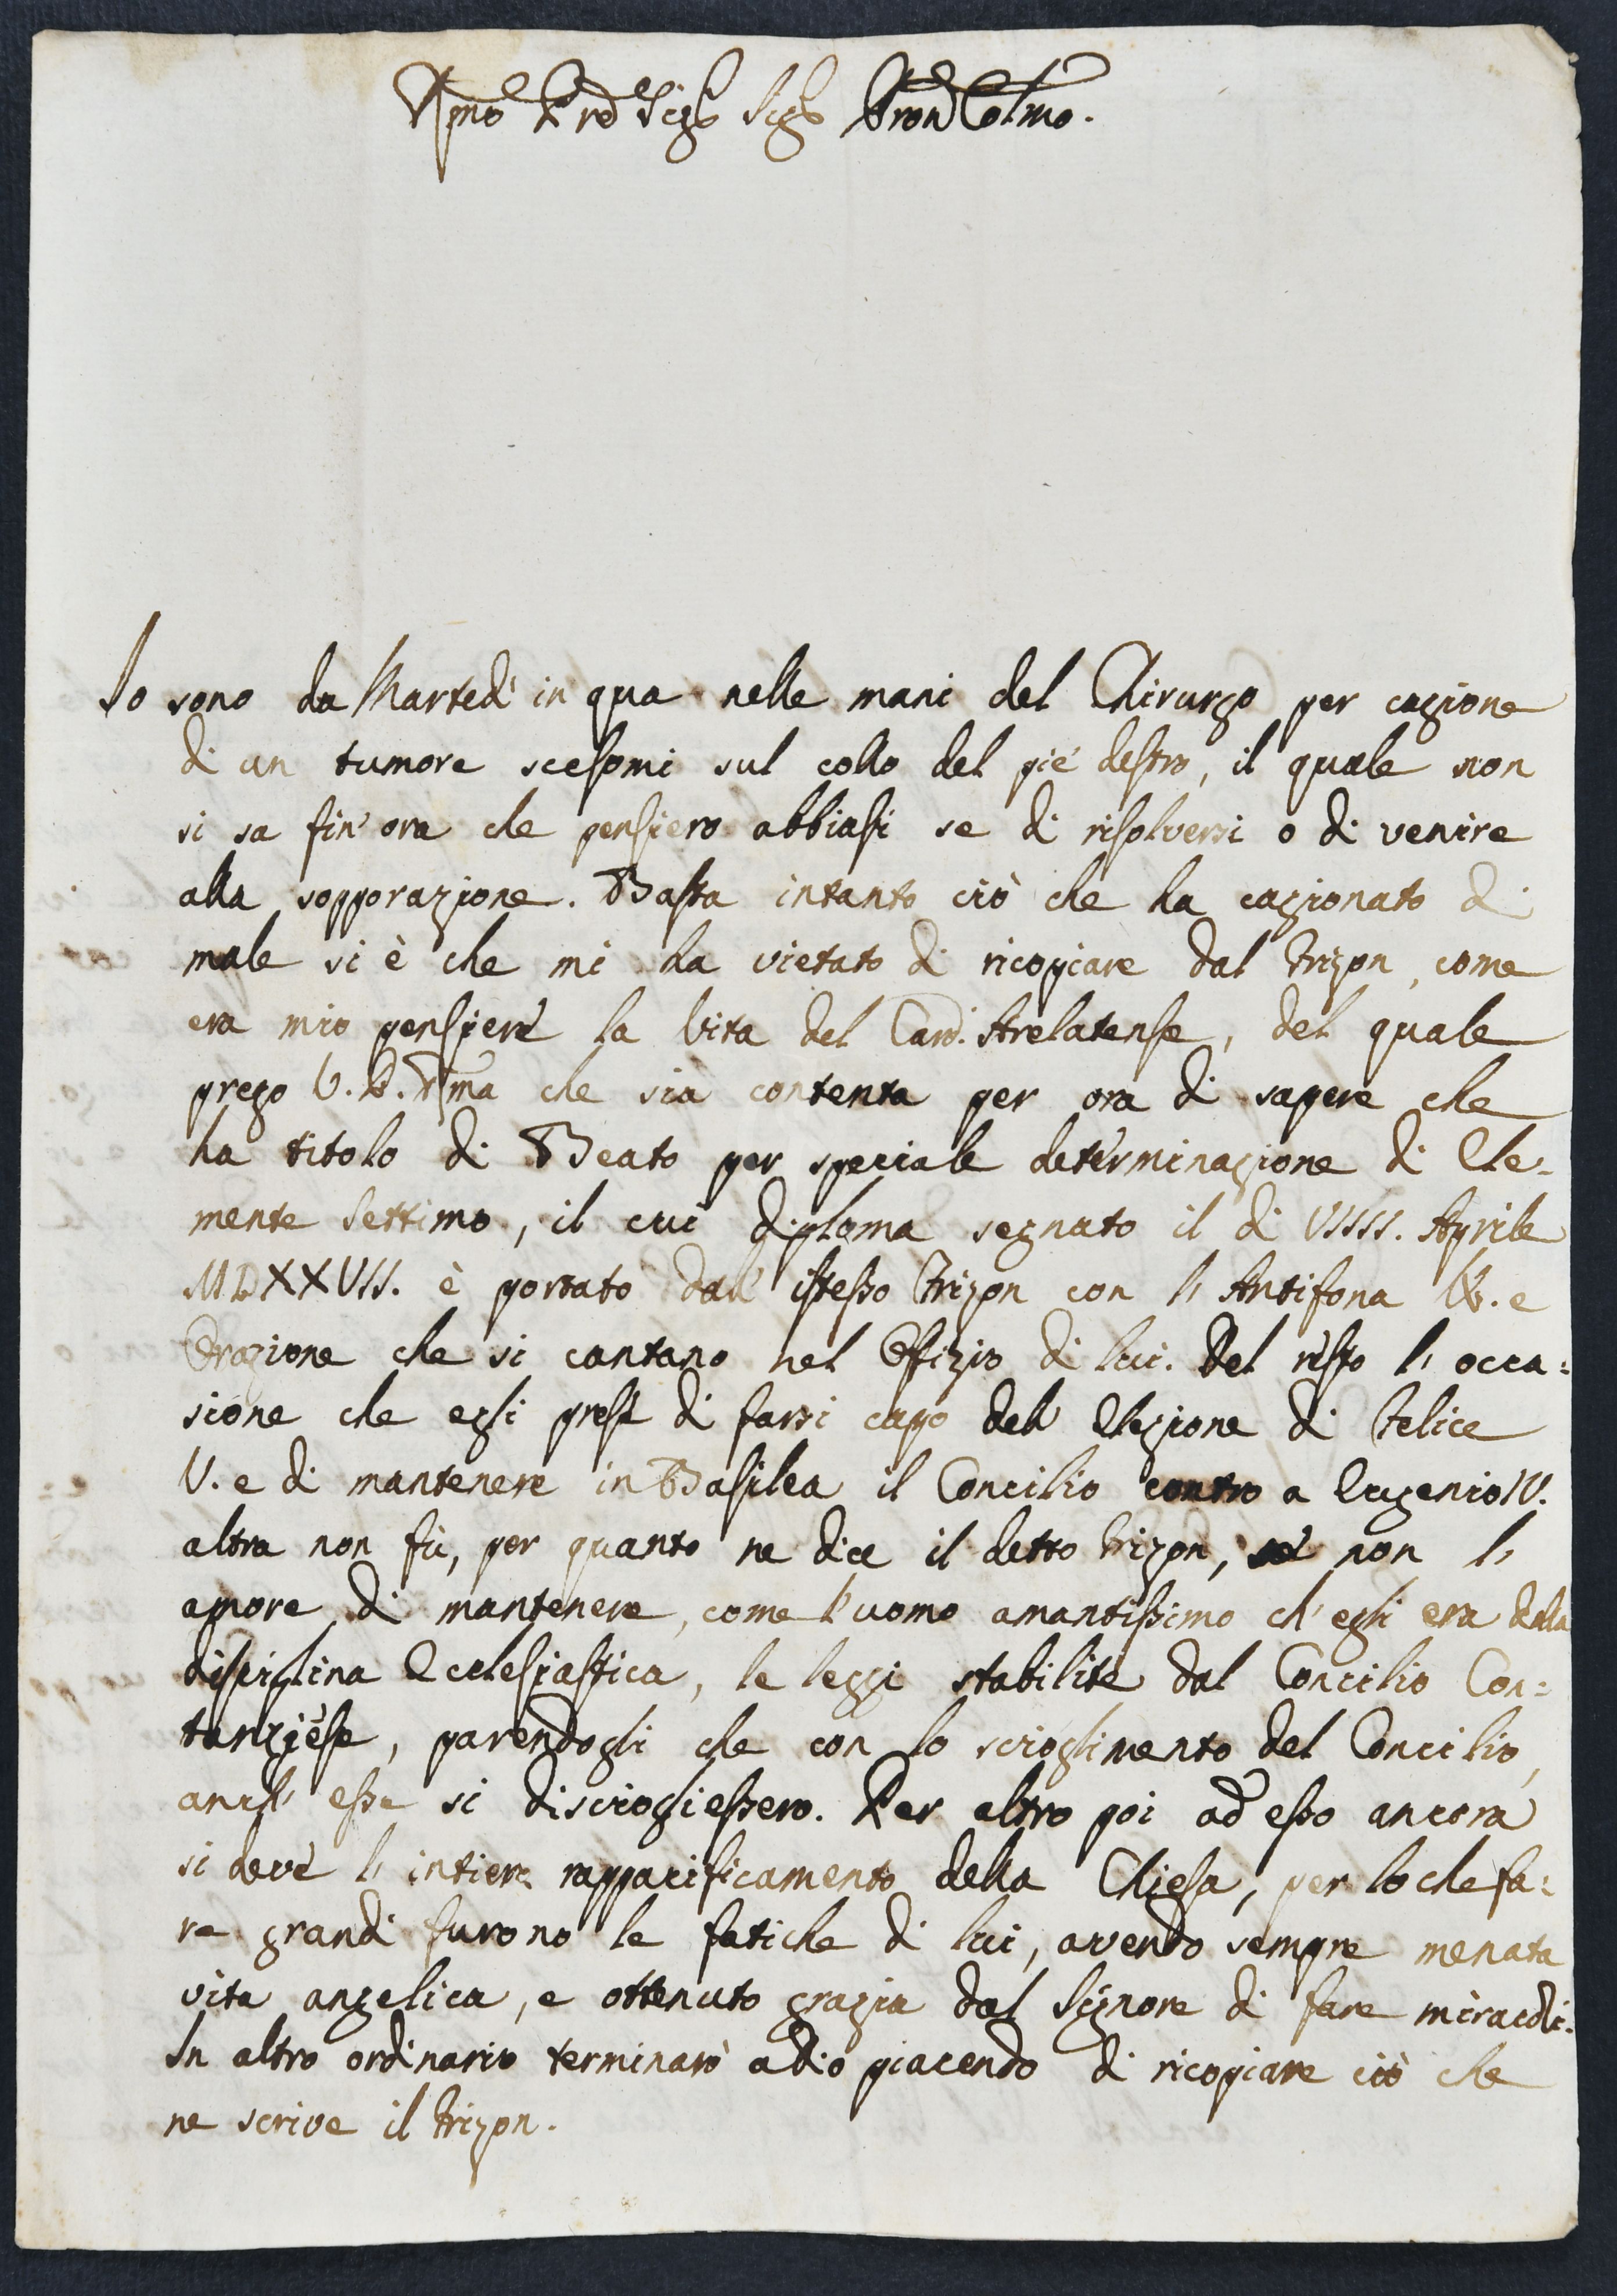 Rmo Pre Sigr Sigr Pron Colmo.
Io sono da Martedì in qua nelle mani del Chirurgo per cagione
di un tumore scesomi sul collo del piè destro, il quale non
si sa fin' ora che pensiero abbiasi se di risolversi o di venire
alla sopporazione. Basta intanto ciò che ha cagionato di
male si è che mi ha vietato di ricopiare dal Frizon, come
era mio pensiere la Vita del Card. Arelatense, del quale
prego V. P. Rma che sia contenta per ora di sapere che
ha titolo di Beato per speciale determinazione di Cle-
mente Settimo, il cui diploma segnato il di VIIII. Aprile
MDXXVII. è portato dall' istesso Frizon con l' Antifona V. e
Orazione che si cantano nel Offizio di lui. Del resto l' occa=
sione che egli prese di farsi capo dell' Elezione di Felice
V. e di mantenere in Basilea il Concilio contro a Eugenio IV.
altra non fù, per quanto ne dice il detto Frizon, se non l'
amore di mantenere, come l' uomo amantissimo ch' egli era della
disciplina Ecclesiastica, le leggi stabilite dal Concilio Con=
tanziese, parendogli che con lo scioglimento del Concilio,
anch' esse si discioghiessero. Per altro poi ad esso ancora
si deve l' intiero rappacificamento della Chiesa, per lo che fa=
re grandi furono le fatiche di lui, avendo sempre menata
vita angelica, e ottenuto grazia dal Signore di fare miracoli.
In altro ordinario terminarò a Dio piacendo di ricopiare ciò che
ne scrive il Frizon.